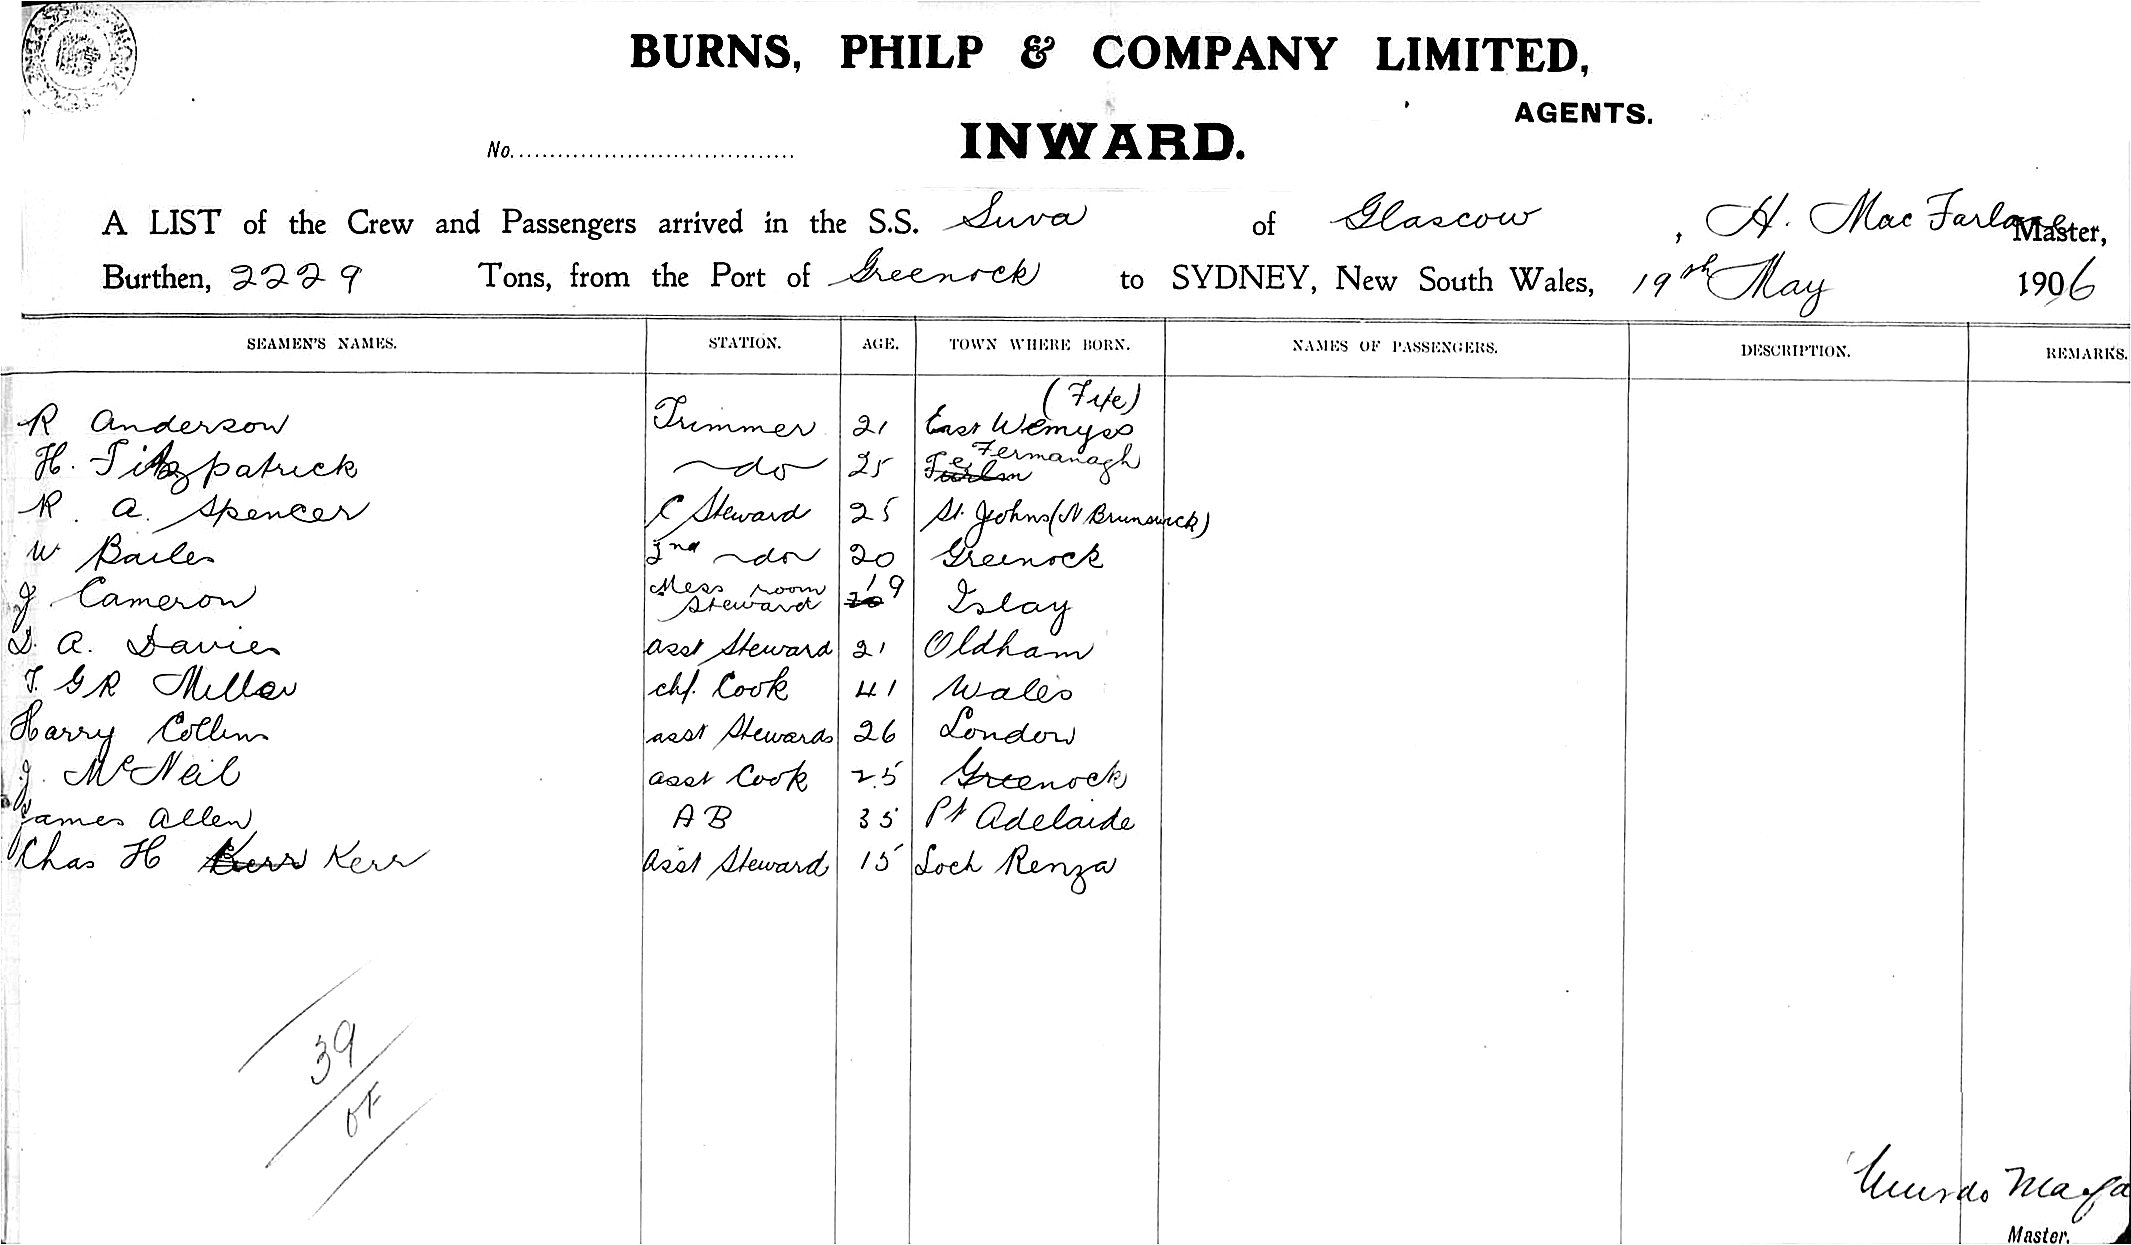 BURNS, PHILP & COMPANY LIMITED,
AGENTS.
No. INWARD.
A LIST of the Crew and Passengers arrived in the S.S. Suva of Glascow, H. MacFarlane Master,
Burthen, 2229 Tons, from the Port of Greenock to SYDNEY, New South Wales, 19th May 1906
SEAMEN'S NAMES. STATION. AGE. TOWN WHERE BORN. NAMES OF PASSENGERS. DESCRIPTION. REMARKS.
(Fife)
R Anderson Trimmer 21 East Wemyss
H. Fitzpatrick do 25 Fermanagh
R. A. Spencer C Steward 25 St. Johns (N Brunswick)
W Bailes 2nd do 20 Greenock
J Cameron Mess room Steward 19 Islay
D. A. Davies asst Steward 21 Oldham
T. G R Miller chf. Cook 41 Wales
Harry Collins asst Steward 26 London
J. McNeil asst Cook 25 Greenock
James Allen A B 35 Pt Adelaide
Chas H Kerr Kerr Asst Steward 15 Loch Renza
39
Murdo
Master.